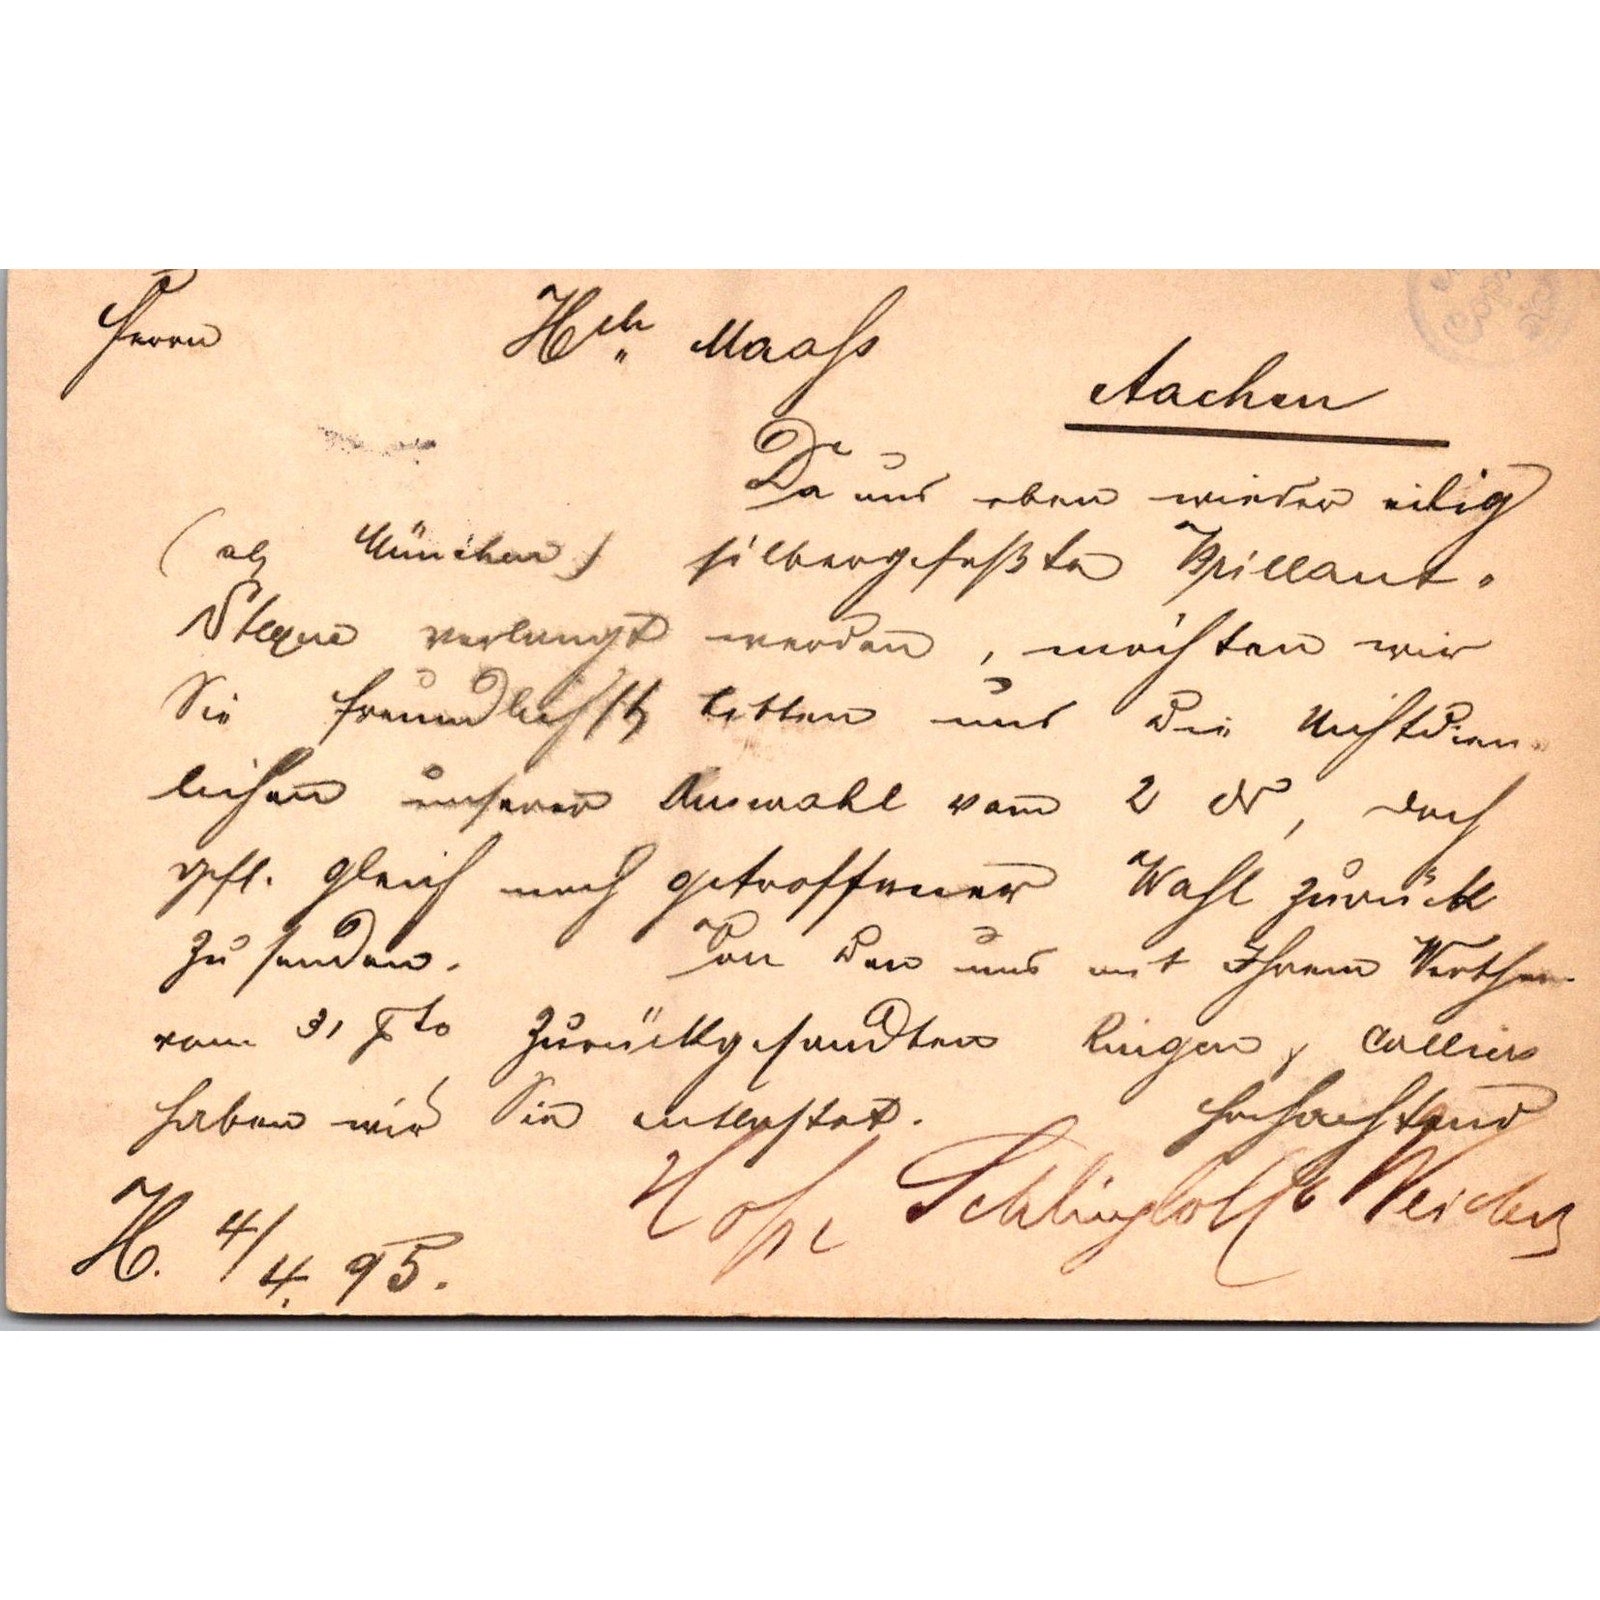 Herrn Hch. Maass
Aachen
Da uns eben wieder eilig
( München ) silbergefaßte Brillant-
verlangt werden, möchten wir
Sie freundlichst bitten uns die Nichtdien-
lichen unserer Auswahl vom 2 ds, doch
gefl. gleich nach getroffener Wahl zurück
zu senden. Von den uns mit Ihrem Werthen
vom 31 pto zurückgesandten Ringen & Colliers
haben wir Sie entlastet. Hochachtend
H. 4/4. 95.